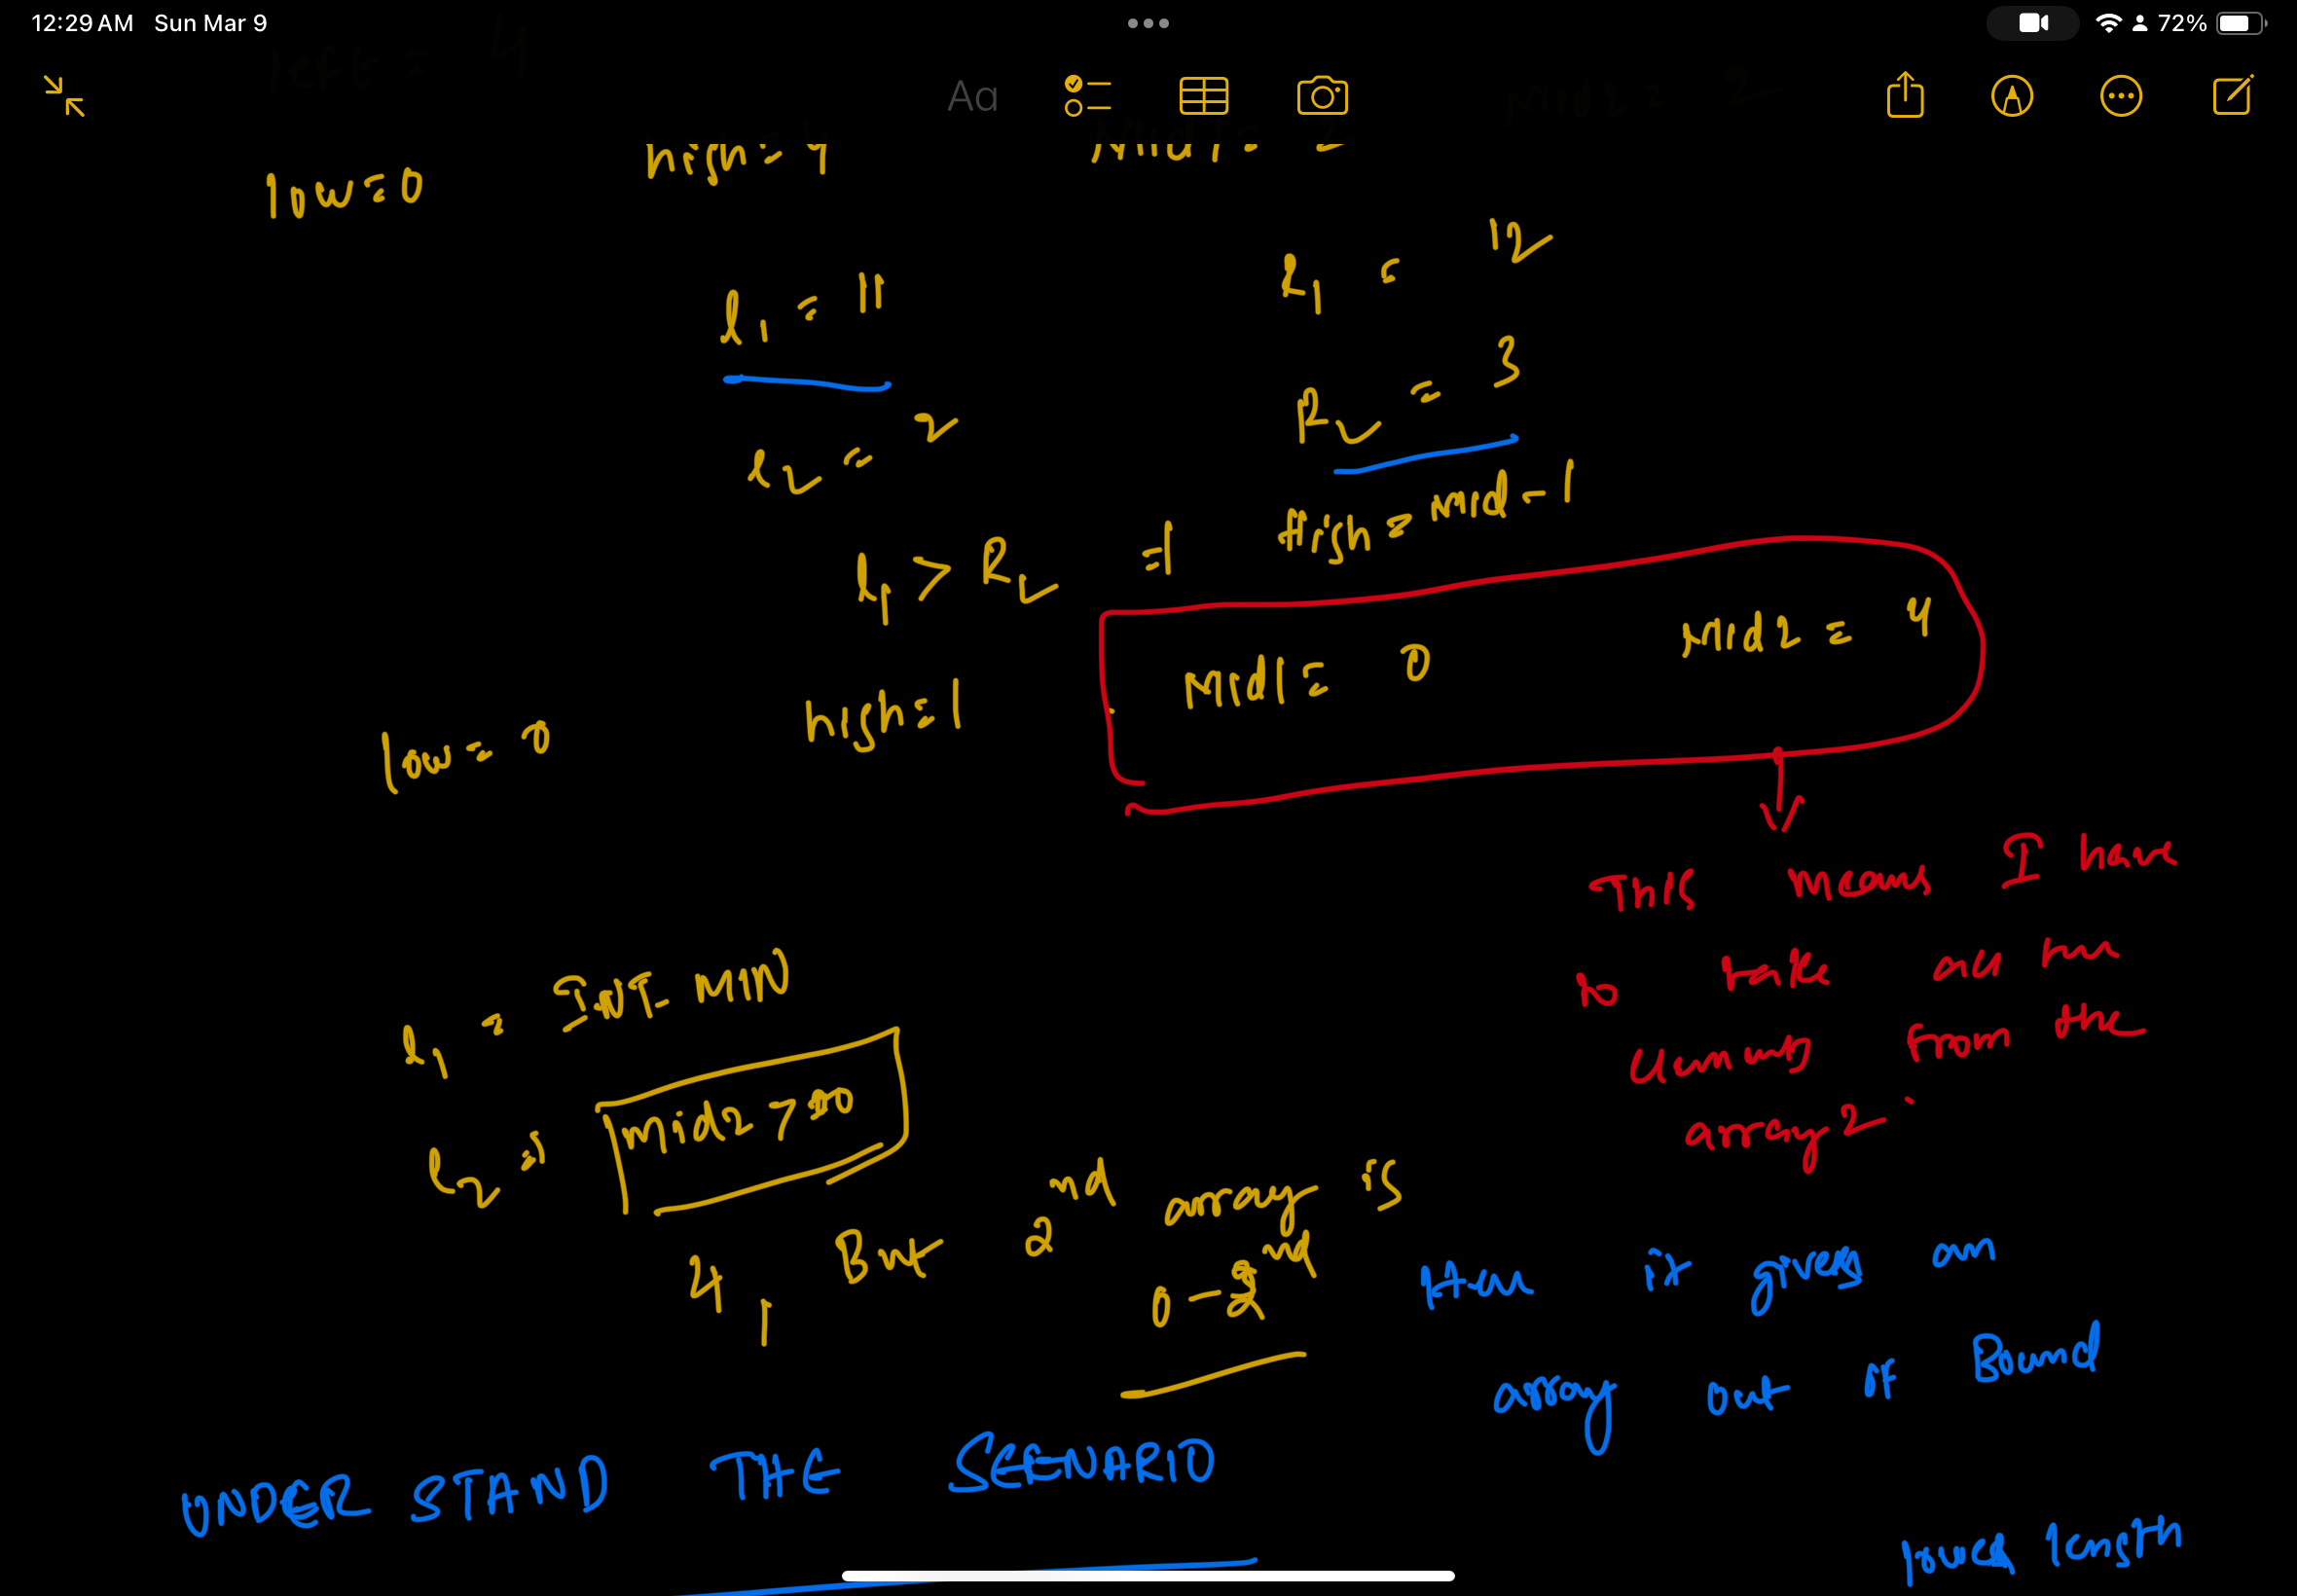 12:29 AM Sun Mar 9
72%
left = 4
Mid2 = 2
Aa
low=0 high=4 Mid1= 2
l1 = 11 R1 = 12
l2 = 2 R2 = 3
l1 > R2 => High = Mid-1
low= 0 high=1 Mid1= 0 Mid2 = 4
This means I have
to take all the
elements from the
array2.
l1 = INT_MIN
l2 =) mid2 >=0
4, But 2nd array is
0-3nd
Here it gives an
array out of Bound
UNDER STAND THE SCENARIO
lower length